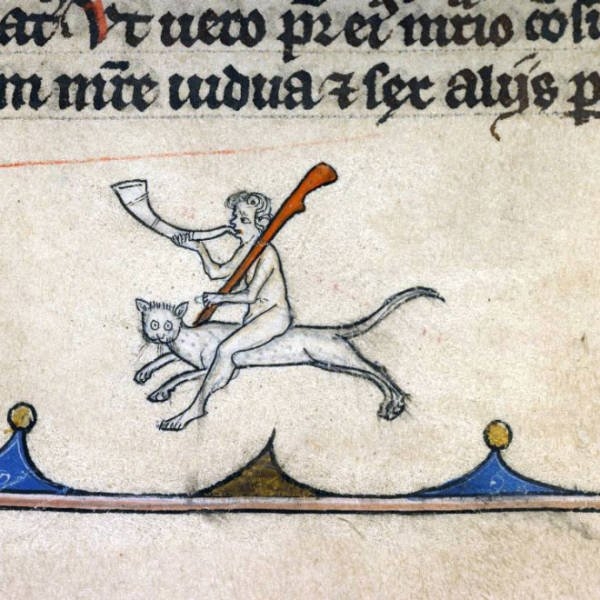 at Vt uero pr ei mitio cosi
m mre uidua ⁊ sex alijs p